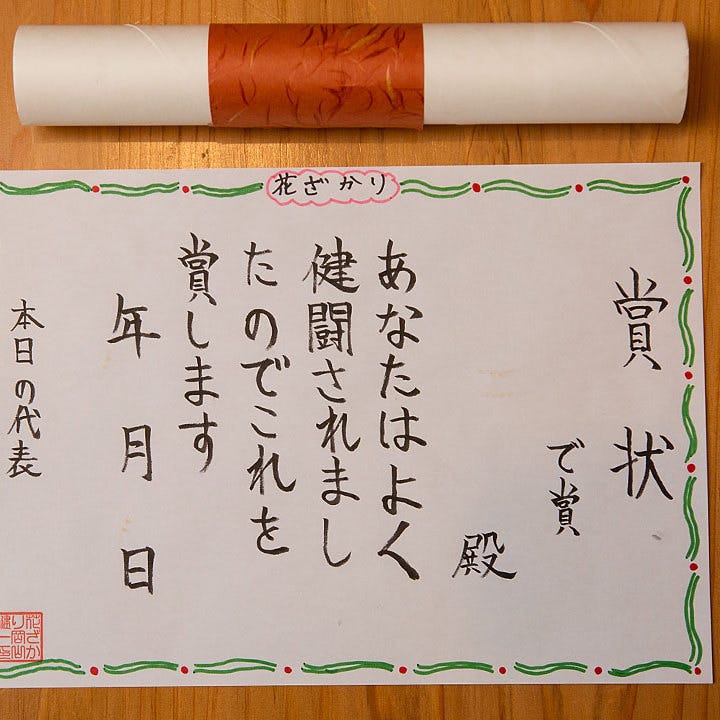 花ざかり
賞状
で賞
殿
あなたはよく
健闘されまし
たのでこれを
賞します
年月日
本日の代表